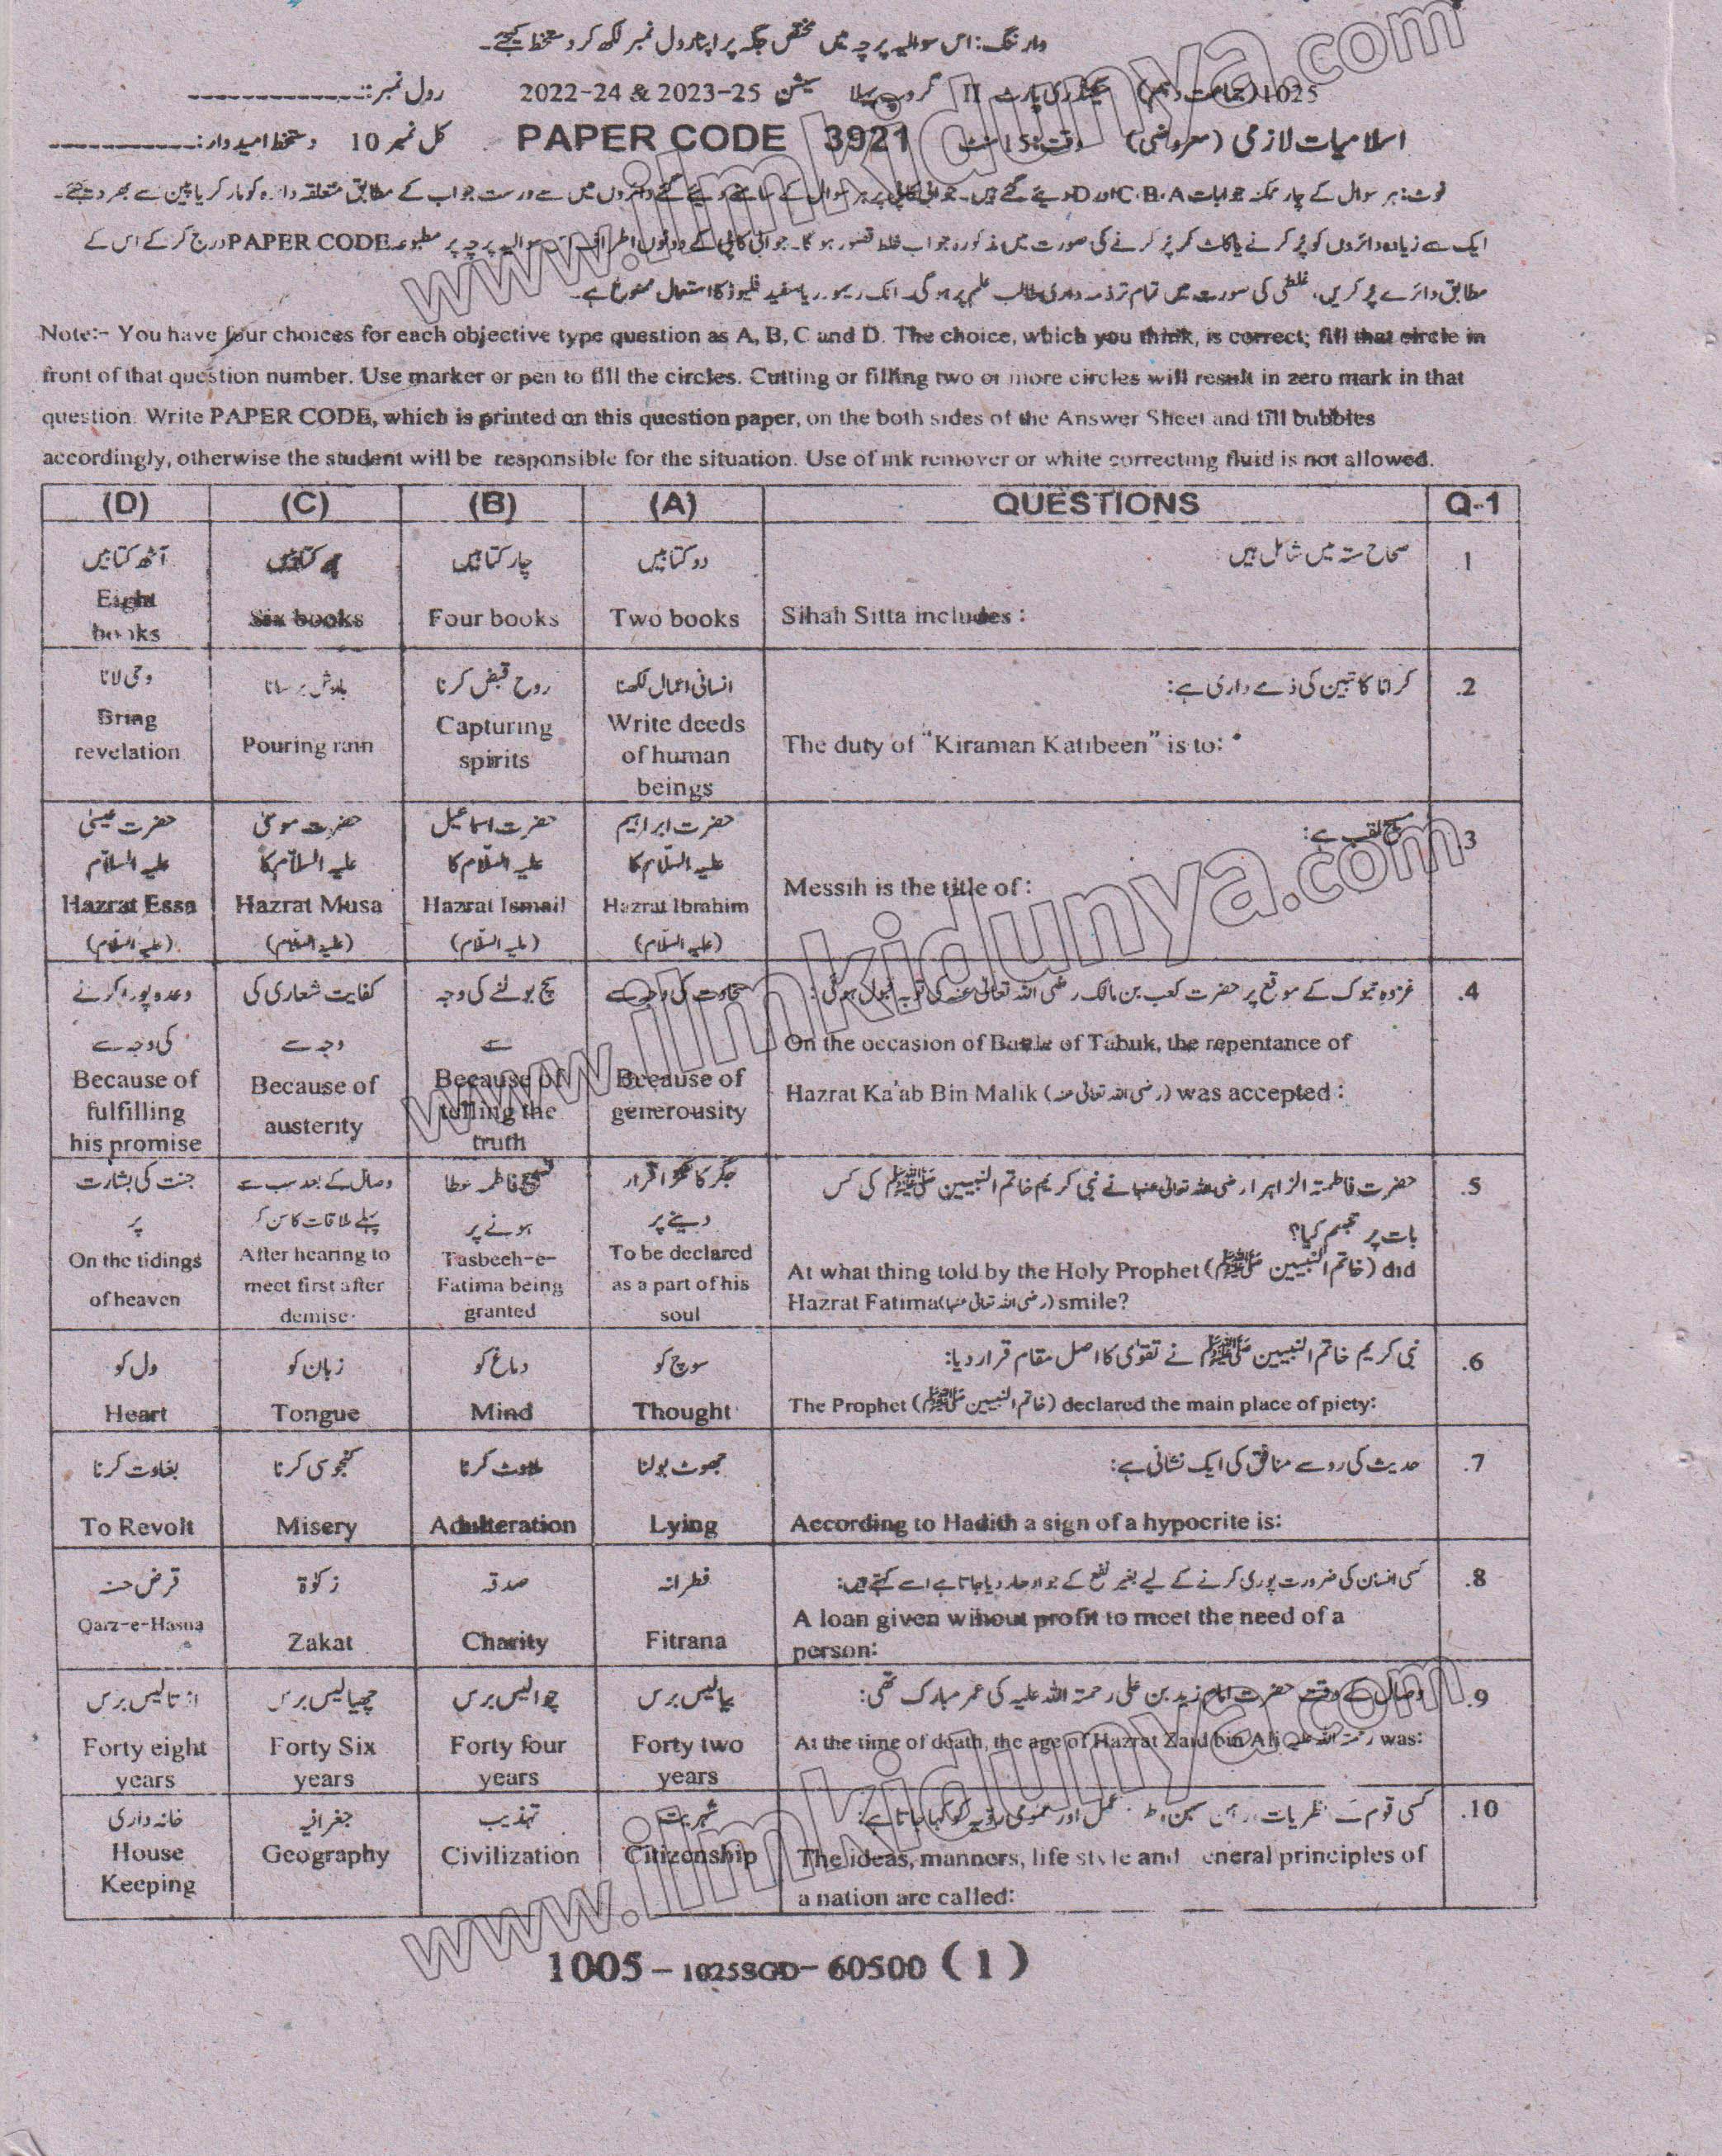 وارننگ: اس سوالیہ پرچہ میں مختص جگہ پر اپنا رول نمبر لکھ کر دستخط کیجئے۔
1025 (جماعت دہم) سیکنڈری پارٹ II گروپ پہلا سیشن 2022-24 & 2023-25 رول نمبر:
اسلامیات لازمی (معروضی) وقت: 15 منٹ PAPER CODE 3921 کل نمبر 10 دستخط امیدوار:
نوٹ: ہر سوال کے چار ممکنہ جوابات C، B، A اور D دیئے گئے ہیں۔ جوابی کاپی پر ہر سوال کے سامنے دیئے گئے دائروں میں سے درست جواب کے مطابق متعلقہ دائرہ کو مارکر یا پین سے بھر دیجئے۔
ایک سے زیادہ دائروں کو پُر کرنے یا کاٹ کر پُر کرنے کی صورت میں مذکورہ جواب غلط تصور ہو گا۔ جوابی کاپی کے دونوں اطراف سوالیہ پرچہ پر مطبوعہ PAPER CODE درج کر کے اس کے
مطابق دائرے پُر کریں، غلطی کی صورت میں تمام تر ذمہ داری طالب علم پر ہو گی۔ انک ریمور یا سفید فلیوڈ کا استعمال ممنوع ہے۔
Note:- You have four choices for each objective type question as A, B, C and D. The choice, which you think, is correct; fill that circle in
front of that question number. Use marker or pen to fill the circles. Cutting or filling two or more circles will result in zero mark in that
question. Write PAPER CODE, which is printed on this question paper, on the both sides of the Answer Sheet and fill bubbles
accordingly, otherwise the student will be responsible for the situation. Use of ink remover or white correcting fluid is not allowed.
(D) (C) (B) (A) QUESTIONS Q-1
آٹھ کتابیں چھ کتابیں چار کتابیں دو کتابیں صحاح ستہ میں شامل ہیں: 1
Eight books Six books Four books Two books Sihah Sitta includes :
وحی لانا بارش برسانا روح قبض کرنا انسانی اعمال لکھنا کراماً کاتبین کی ذمے داری ہے: .2
Bring revelation Pouring rain Capturing spirits Write deeds of human beings The duty of "Kiraman Katibeen" is to:
حضرت عیسیٰ علیہ السلام حضرت موسیٰ علیہ السلام کا حضرت اسماعیل علیہ السلام کا حضرت ابراہیم علیہ السلام کا مسیح لقب ہے: .3
Hazrat Essa (علیہ السلام) Hazrat Musa (علیہ السلام) Hazrat Ismail (علیہ السلام) Hazrat Ibrahim (علیہ السلام) Messih is the title of :
وعدہ پورا کرنے کی وجہ سے کفایت شعاری کی وجہ سے سچ بولنے کی وجہ سے سخاوت کی وجہ سے غزوہ تبوک کے موقع پر حضرت کعب بن مالک رضی اللہ تعالیٰ عنہ کی توبہ قبول ہوئی: .4
Because of fulfilling his promise Because of austerity Because of telling the truth Because of generousity On the occasion of Battle of Tabuk, the repentance of
Hazrat Ka'ab Bin Malik (رضی اللہ تعالیٰ عنہ) was accepted :
جنت کی بشارت پر وصال کے بعد سب سے پہلے ملاقات کا سن کر تسبیح فاطمہ عطا ہونے پر جگر کا ٹکڑا قرار دینے پر حضرت فاطمۃ الزاہرا رضی اللہ تعالیٰ عنہا نے نبی کریم خاتم النبیین ﷺ کی کس .5
بات پر تبسم کیا؟
On the tidings of heaven After hearing to meet first after demise. Tasbeeh-e-Fatima being granted To be declared as a part of his soul At what thing told by the Holy Prophet (خاتم النبیین ﷺ) did
Hazrat Fatima (رضی اللہ تعالیٰ عنہا) smile?
دل کو زبان کو دماغ کو سوچ کو نبی کریم خاتم النبیین ﷺ نے تقوٰی کا اصل مقام قرار دیا: .6
Heart Tongue Mind Thought The Prophet (خاتم النبیین ﷺ) declared the main place of piety:
بغاوت کرنا کنجوسی کرنا ملاوٹ کرنا جھوٹ بولنا حدیث کی رو سے منافق کی ایک نشانی ہے: .7
To Revolt Misery Adulteration Lying According to Hadith a sign of a hypocrite is:
قرض حسنہ زکوٰۃ صدقہ فطرانہ کسی انسان کی ضرورت پوری کرنے کے لیے بغیر نفع کے جو ادھار دیا جاتا ہے اسے کہتے ہیں: .8
Qarz-e-Hasna Zakat Charity Fitrana A loan given wihout profit to meet the need of a
person:
اڑتالیس برس چھیالیس برس چوالیس برس بیالیس برس وصال کے وقت حضرت امام زید بن علی رحمتہ اللہ علیہ کی عمر مبارک تھی: .9
Forty eight years Forty Six years Forty four years Forty two years At the time of death, the age of Hazrat Zaid bin Ali رحمتہ اللہ علیہ was:
خانہ داری جغرافیہ تہذیب شہریت کسی قوم کے نظریات، رہن سہن، عمل اور عمومی رویہ کو کہا جاتا ہے: .10
House Keeping Geography Civilization Citizenship The ideas, manners, life style and eneral principles of
a nation are called:
1005 - 1025SGD - 60500 ( 1 )
www.ilmkidunya.com
www.ilmkidunya.com
www.ilmkidunya.com